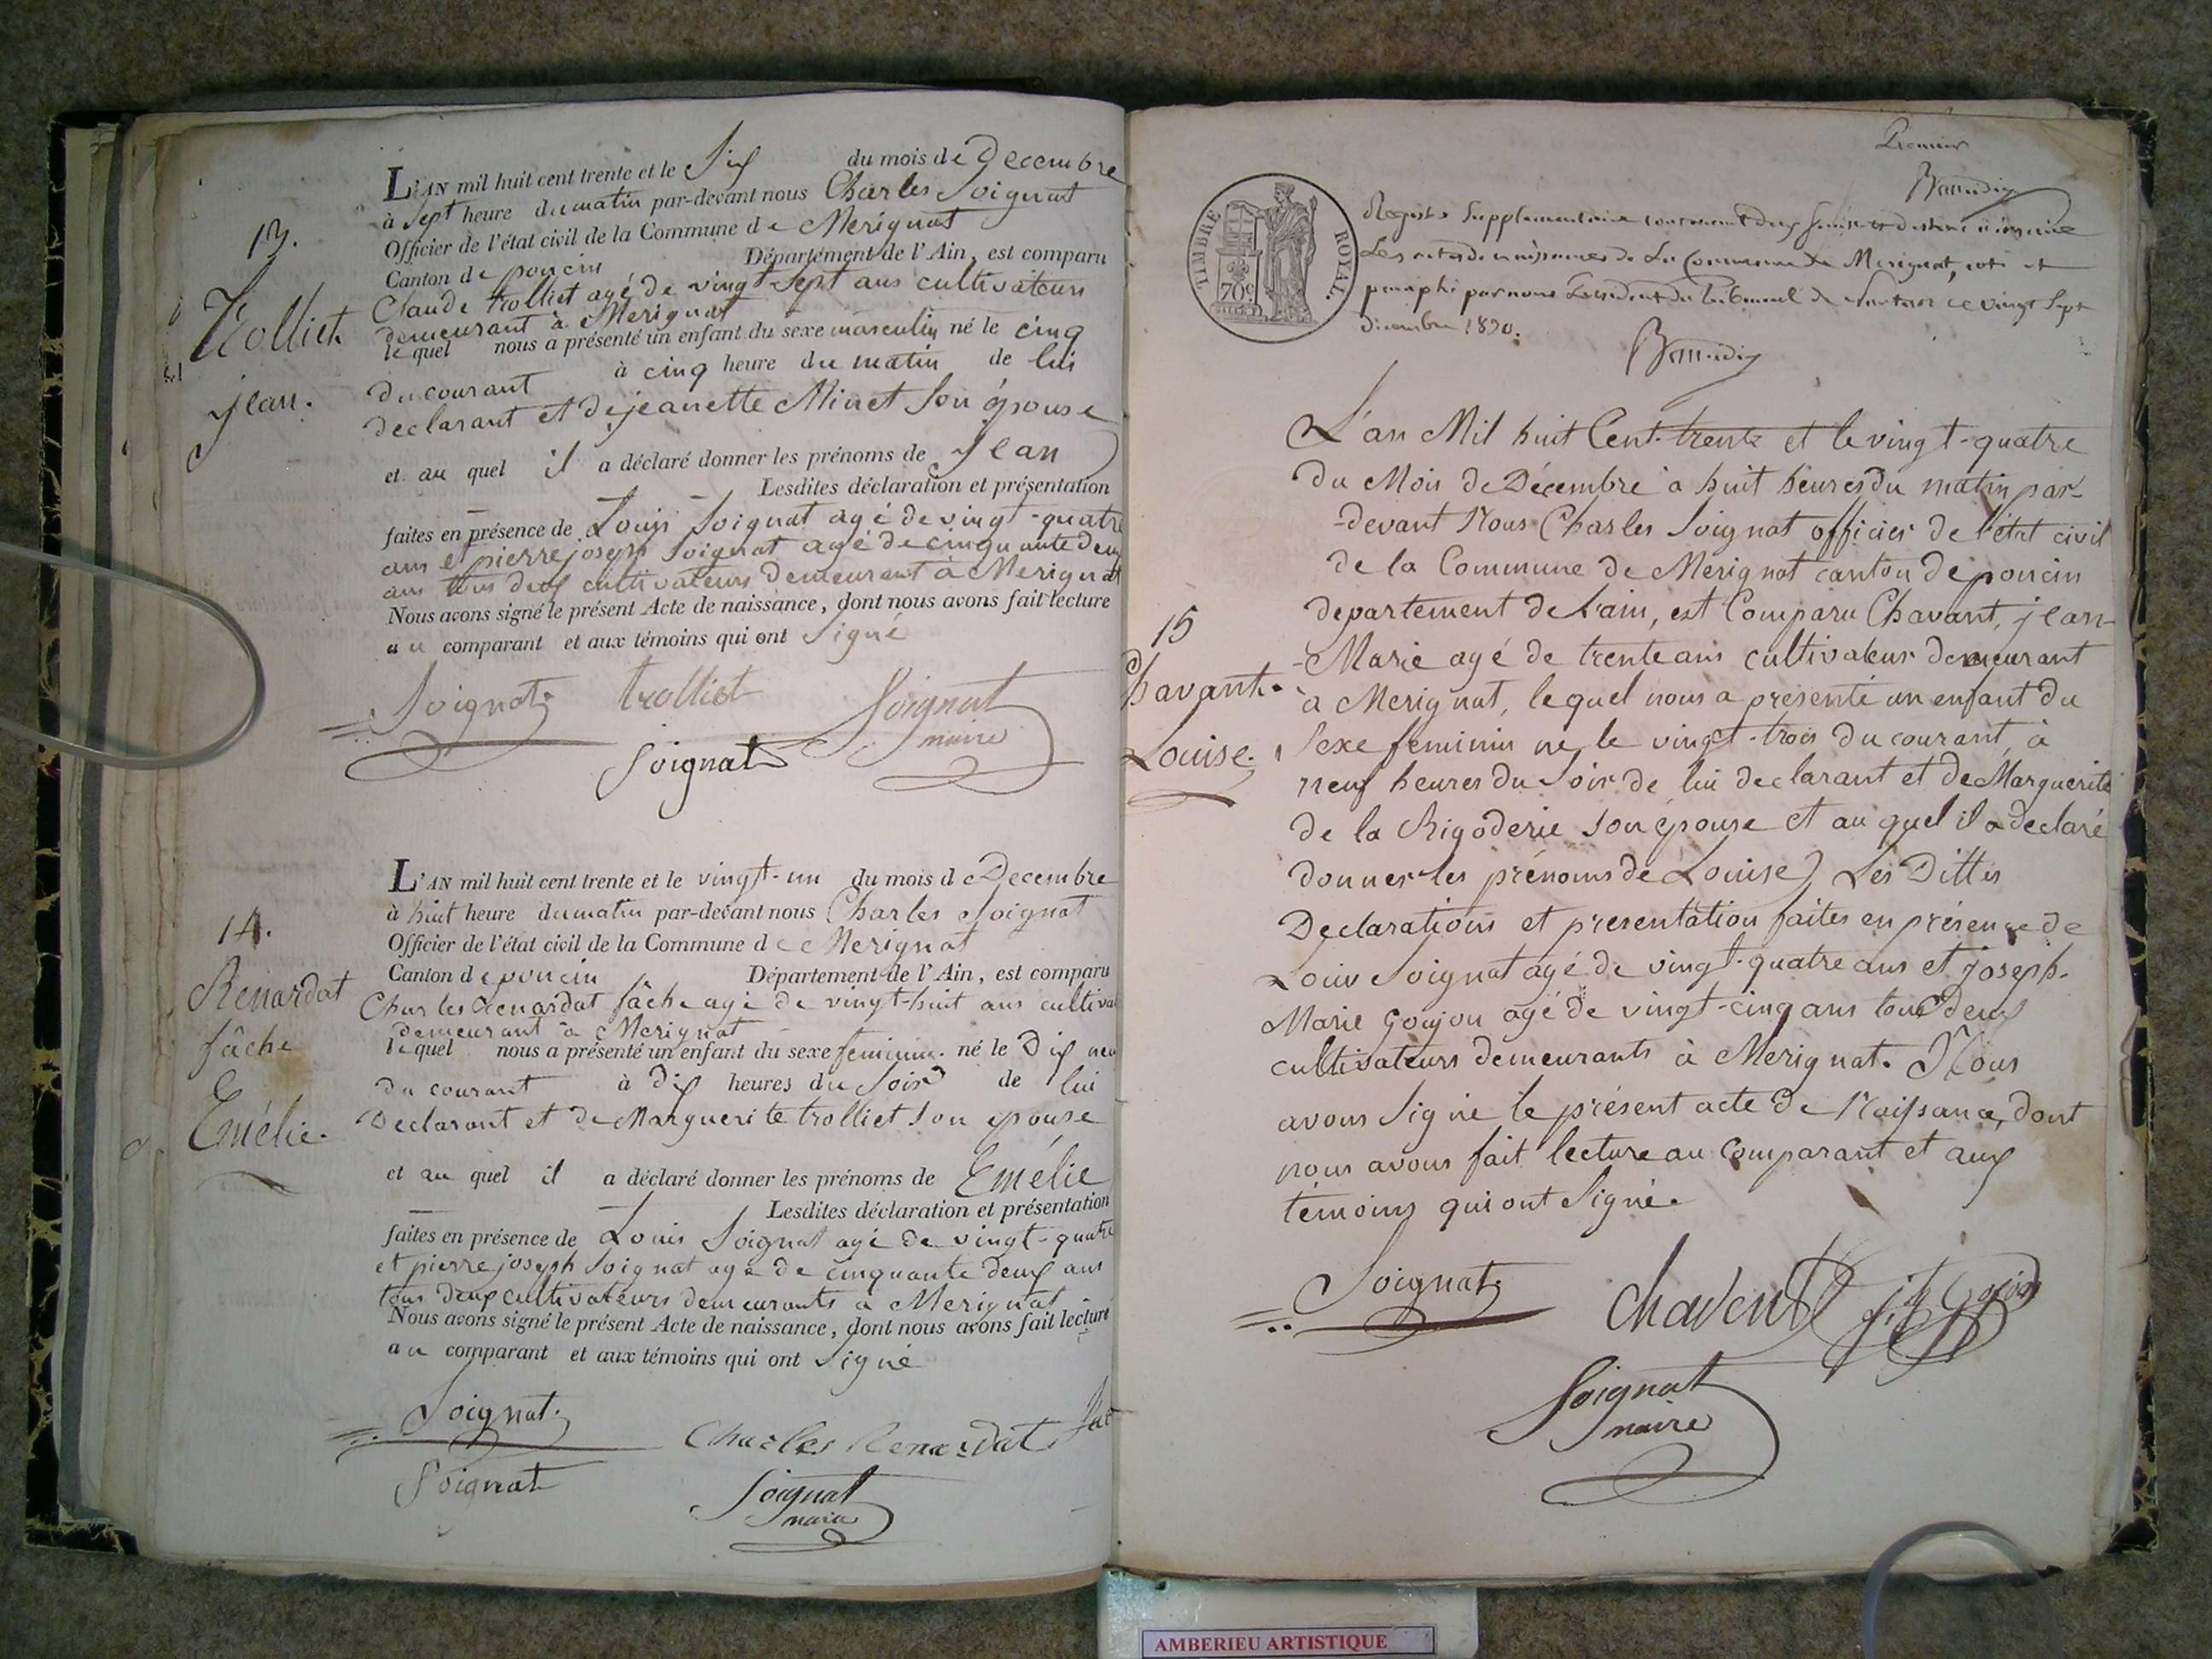 13.
Trolliet
jean.
L'AN mil huit cent trente et le Six du mois de Decembre
à Sept heure du matin par-devant nous Charles Soignat
Officier de l'état civil de la Commune de Merignat
Canton de poncin Département de l'Ain, est comparu
Claude trolliet agé de vingt-Sept ans cultivateur
demeurant à Merignat
lequel nous a présenté un enfant du sexe masculin né le cinq
du courant à cinq heure du matin de lui
declarant et de jeanette Minet Son épouse
et au quel il a déclaré donner les prénoms de Jean
Lesdites déclaration et présentation
faites en présence de Louis Soignat agé de vingt-quatre
ans et pierre joseph Soignat agé de cinquante deux
ans tous deux cultivateurs demeurant à Merignat
Nous avons signé le présent Acte de naissance, dont nous avons fait lecture
au comparant et aux témoins qui ont Signé
Soignat trolliet Soignat
maire
Soignat
14.
Renardat
fâche
Emélie.
L'AN mil huit cent trente et le vingt-un du mois de Decembre
à huit heure du matin par-devant nous Charles Soignat
Officier de l'état civil de la Commune de Merignat
Canton de poncin Département de l'Ain, est comparu
Charles Renardat fâche agé de vingt-huit ans cultiva
demeurant à Merignat
lequel nous a présenté un enfant du sexe feminin. né le Dix neu
du courant à Dix heures du Soir de lui
Declarant et de Marguerite trolliet Son epouse
et au quel il a déclaré donner les prénoms de Emélie
Lesdites déclaration et présentation
faites en présence de Louis Soignat agé de vingt-quatre
et pierre joseph Soignat agé de cinquante deux ans
tous deux cultivateurs demeurants à Merignat
Nous avons signé le présent Acte de naissance, dont nous avons fait lecture
au comparant et aux témoins qui ont Signé
Soignat.
Charles Renardat fac
Soignat
Soignat
maire
Premier
TIMBRE ROYAL.
70c
Registre Supplementaire contenant deux feuillets destiné à inscrire
Les actes de naissances de La Commune de Merignat, coté et
paraphé par nous President du Tribunal de Nantua ce vingt Sept
Décembre 1830.
15
Chavant.
Louise.
L'an Mil huit Cent trente et le vingt-quatre
du Mois de Décembre à huit heures du matin par-
-devant Nous Charles Soignat officier de l'état civil
de la Commune de Merignat canton de poncin
departement de L'ain, est Comparu Chavant, jean-
-Marie agé de trente ans cultivateur demeurant
à Merignat, lequel nous a présenté un enfant du
Sexe feminin né le vingt-trois du courant, à
neuf heures du Soir de lui declarant et de Marguerite
de la Rigoderie son épouse et au quel il a declaré
donner les prénoms de Louise Les Dittes
Declarations et presentation faites en présence de
Louis Soignat agé de vingt-quatre ans et joseph-
Marie Goujon agé de vingt-cinq ans tous deux
cultivateurs demeurants à Merignat. Nous
avons Signé le présent acte de Naissance, dont
nous avons fait lecture au comparant et aux
témoins qui ont Signé.
Soignat chavent
Soignat
maire
AMBERIEU ARTISTIQUE